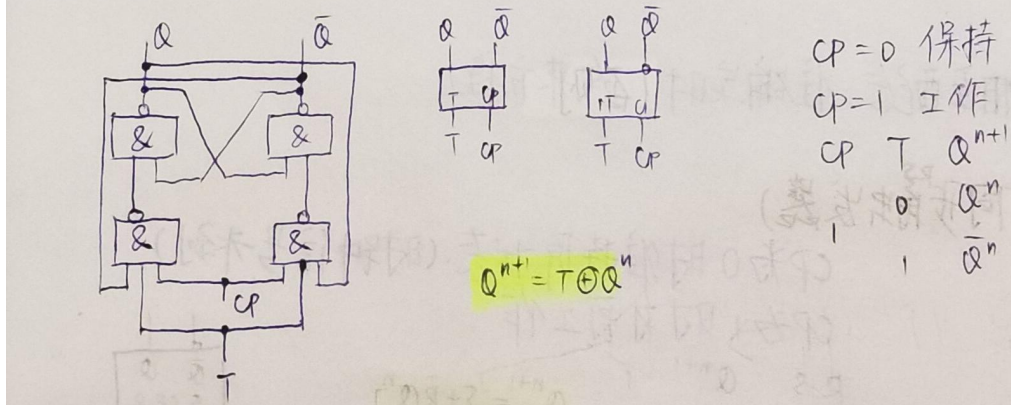 Q Q̄
& &
& &
CP
T
Q Q̄
T CP
T CP
Q Q̄
1T C1
T CP
Q^{n+1} = T⊕Q^n
CP=0 保持
CP=1 工作
CP T Q^{n+1}
0 Q^n
1
1 Q̄^n